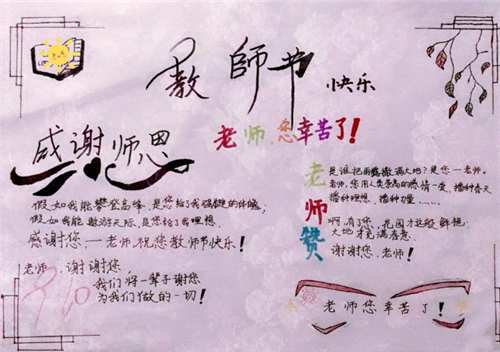 教師节快乐
感谢师恩
老师,您幸苦了!
假如我能攀登高峰,是您给了我强健的体魄,
假如我能遨游天际,是您给了我理想,
感谢您一老师,祝您教师节快乐!
老师,谢谢您,
我们将一辈子谢您
为我们做的一切!
9.10
老师赞
是谁把雨露撒满大地?是您一老师。
老师,您用人类崇高的热情一爱,播种春天
播种理想、播种力量……
啊,有了您,花园才这般鲜艳,
大地才充满春意
谢谢您,老师!
老师您幸苦了!